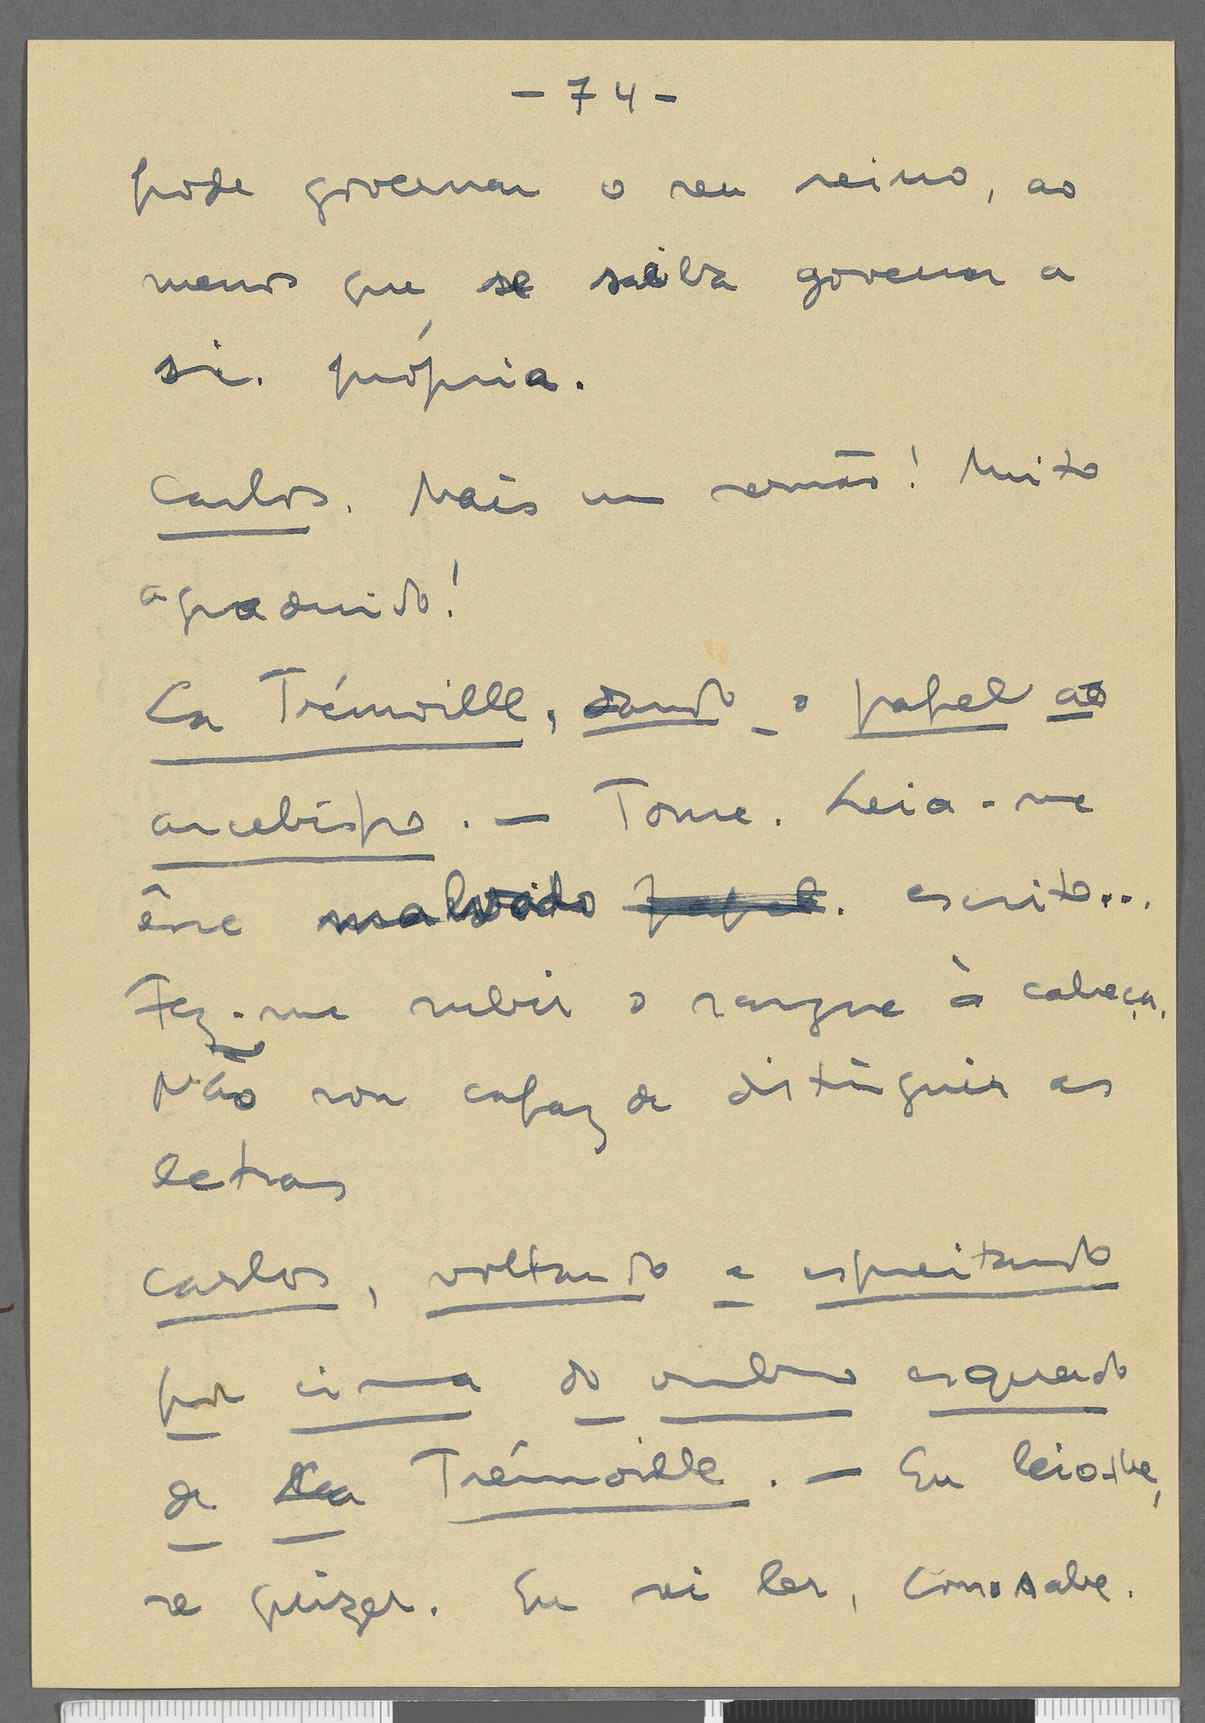 - 74 -
pode governar o seu reino, ao
menos que se saiba governar a
si própria.
Carlos. Mais um sermão! Muito
agradecido!
La Trémoille, dando o papel ao
arcebispo. — Tome. Leia-me
êsse malvado papel. escrito...
Fez-me subir o sangue à cabeça.
Não sou capaz de distinguir as
letras
Carlos, voltando e espreitando
por cima do ombro esquerdo
de La Trémoille. — Eu leio-lhe,
se quizer. Eu sei ler, como sabe.